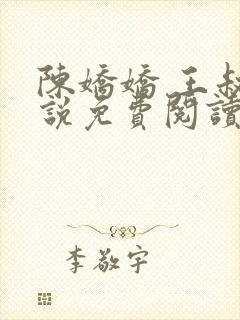 陳嬌嬌 王叔
說免費閱讀
李敬宇